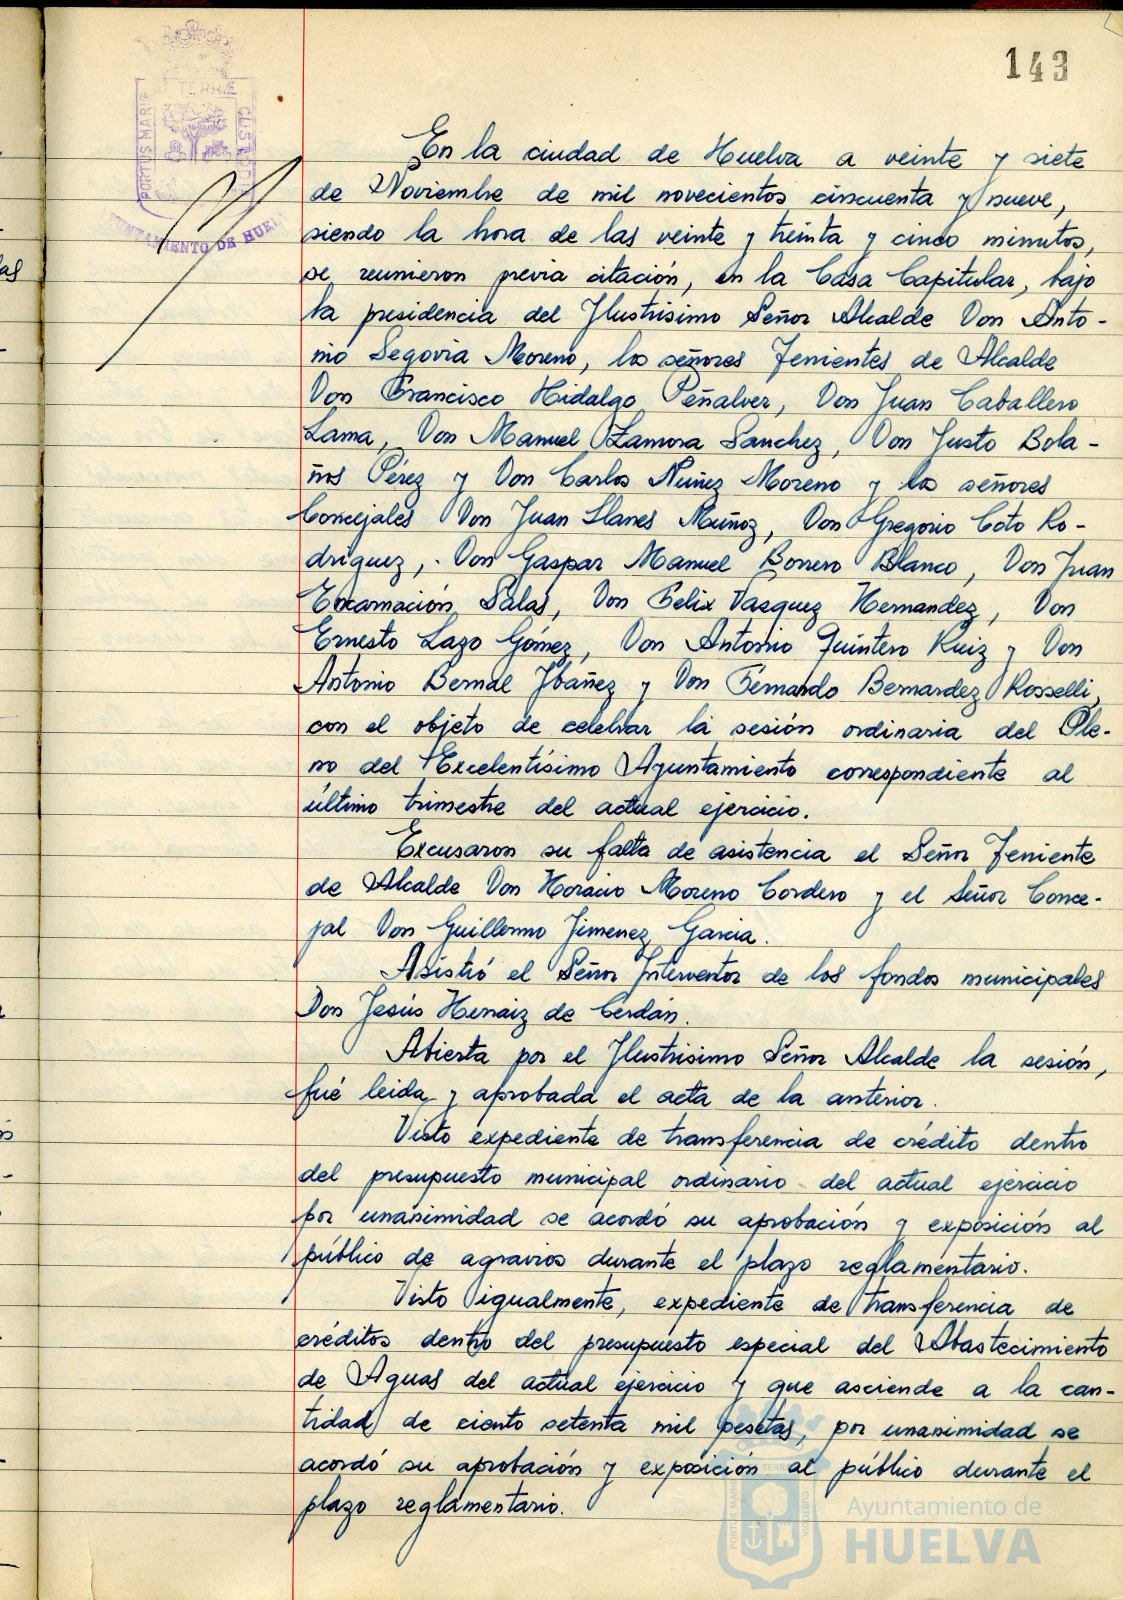 143
PORTUS MARIS ET TERRÆ CUSTODIA
AYUNTAMIENTO DE HUELVA
En la ciudad de Huelva a veinte y siete
de Noviembre de mil novecientos cincuenta y nueve,
siendo la hora de las veinte y treinta y cinco minutos,
se reunieron previa citación, en la Casa Capitular, bajo
la presidencia del Ilustrisimo Señor Alcalde Don Anto-
nio Segovia Moreno, los señores Tenientes de Alcalde
Don Francisco Hidalgo Peñalver, Don Juan Caballero
Lama, Don Manuel Zamora Sanchez, Don Justo Bola-
ños Pérez y Don Carlos Nuñez Moreno y los señores
Concejales Don Juan Llanes Muñoz, Don Gregorio Coto Ro-
driguez, Don Gaspar Manuel Borrero Blanco, Don Juan
Encarnación Salas, Don Felix Vazquez Hernandez, Don
Ernesto Lazo Gómez, Don Antonio Quintero Ruiz y Don
Antonio Bernal Ibañez y Don Fernando Bernardez Rosselli,
con el objeto de celebrar la sesión ordinaria del Ple-
no del Excelentísimo Ayuntamiento correspondiente al
último trimestre del actual ejercicio.
Excusaron su falta de asistencia el Señor Teniente
de Alcalde Don Horacio Moreno Cordero y el Señor Conce-
jal Don Guillermo Jimenez Garcia.
Asistió el Señor Interventor de los fondos municipales
Don Jesús Hernaiz de Cerdán.
Abierta por el Ilustrisimo Señor Alcalde la sesión,
fué leida y aprobada el acta de la anterior.
Visto expediente de transferencia de crédito dentro
del presupuesto municipal ordinario del actual ejercicio
por unanimidad se acordó su aprobación y exposición al
público de agravios durante el plazo reglamentario.
Visto igualmente, expediente de transferencia de
créditos dentro del presupuesto especial del Abastecimiento
de Aguas del actual ejercicio y que asciende a la can-
tidad de ciento setenta mil pesetas, por unanimidad se
acordó su aprobación y exposición al público durante el
plazo reglamentario.
Ayuntamiento de
HUELVA